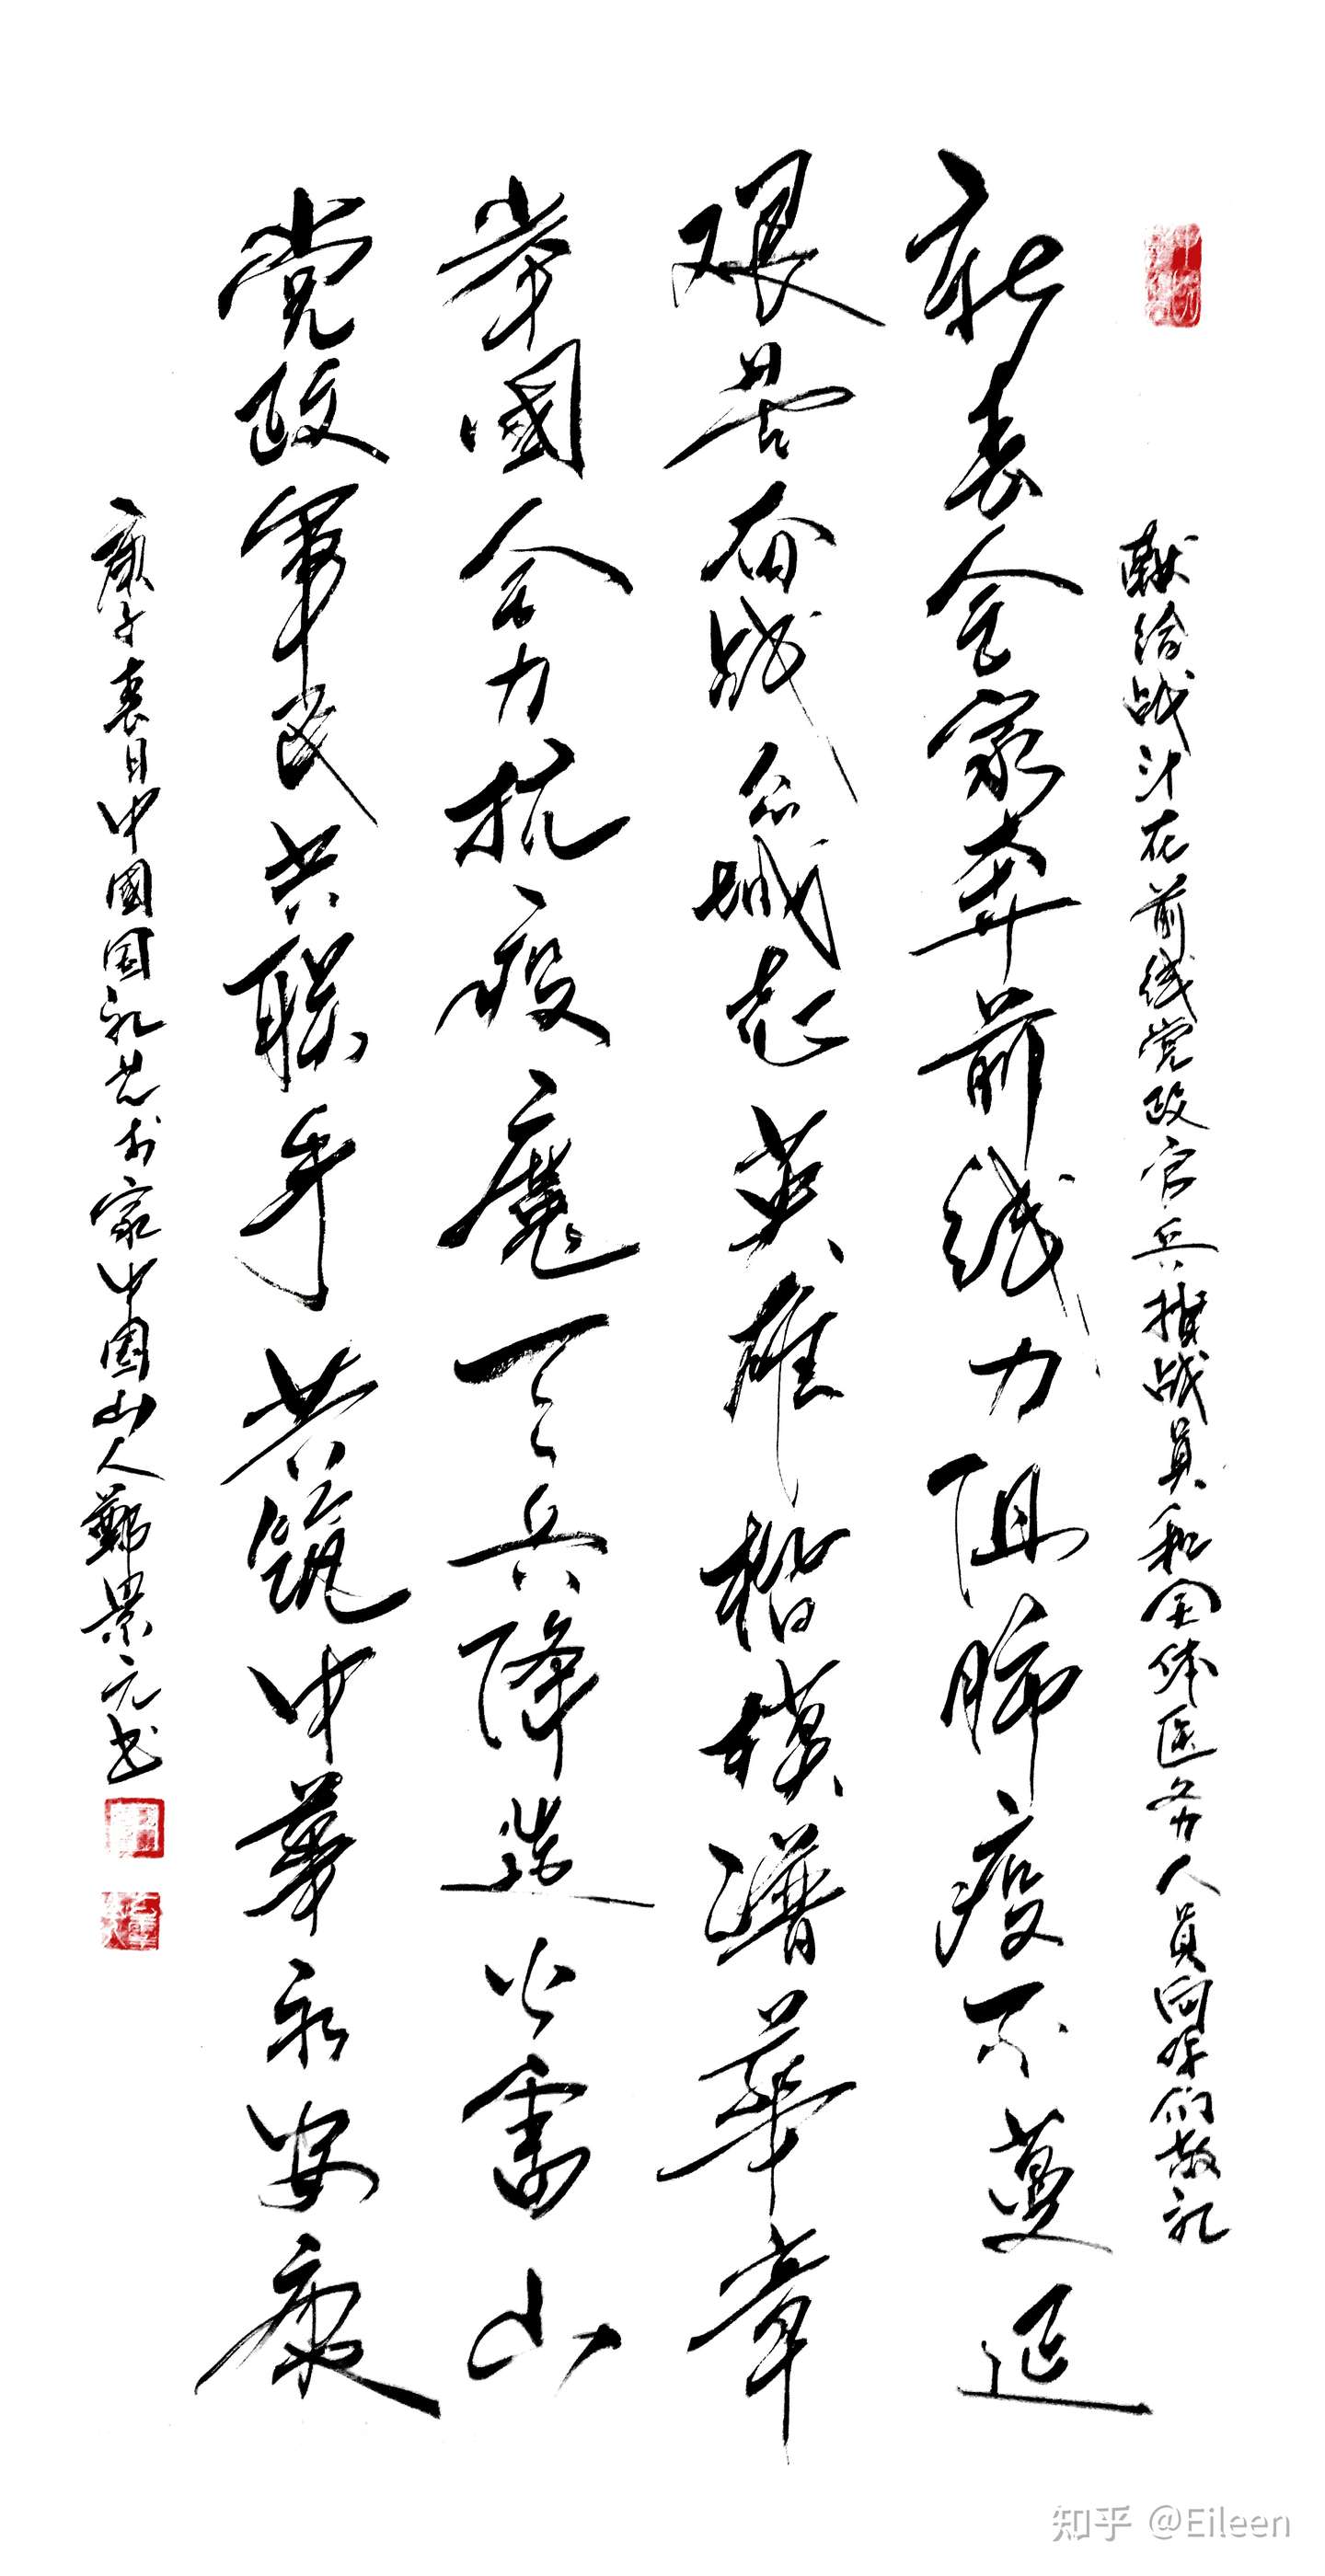 献给战斗在前线党政官兵指战员和全体医务人员向你们敬礼
新春舍家奔前线力阻肺疫不蔓延
艰苦奋战众城起英雄楷模谱华章
举國合力抗疫魔天兵降造火雷山
党政军民共联手共筑中华永安康
庚子春日中國国礼艺术家中国山人鄭景元书
知乎 @Eileen